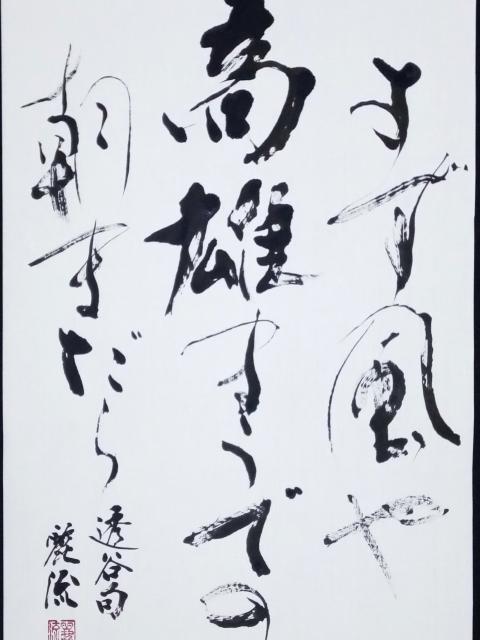 すず風や
高雄まうでの
朝まだら
透谷句
麗流